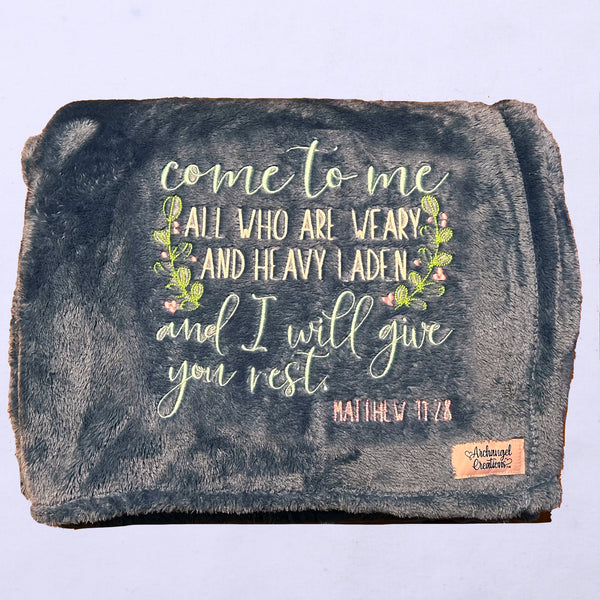 come to me
ALL WHO ARE WEARY
AND HEAVY LADEN
and I will give
you rest.
MATTHEW 11:28
Archangel
Creations